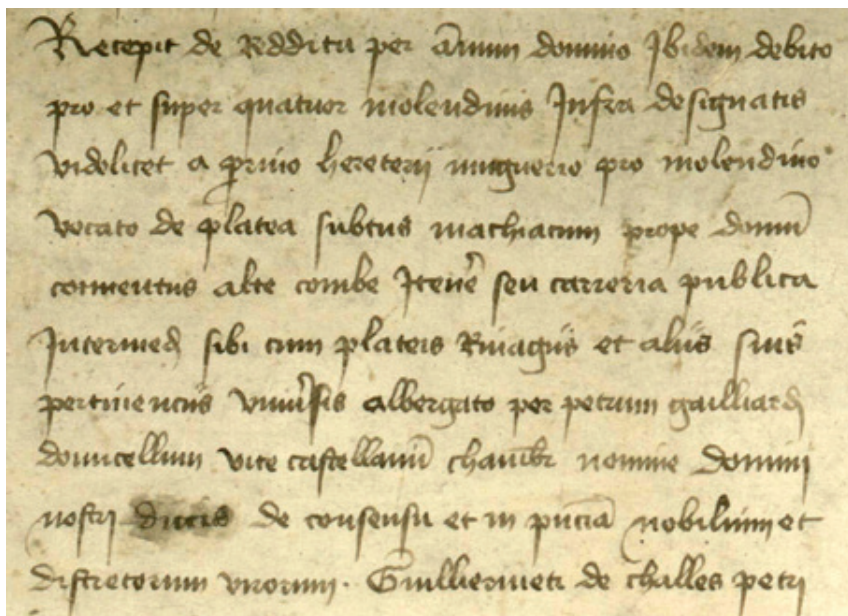 Recepit de Redditu per annum domino Ibidem debito
pro et super quatuor molendinis Infra designatis
videlicet a primo heneterii mugnerio pro molendino
vocato de platea subtus machiacum prope domū
conventus alte combe Itenē seu carreria publica
Intermed sibi cum plateis Riuagiis et aliis suis
pertinenciis vniusis albergato per petrum gailliard
domicellum vice castellanū chambr nomine domini
nostri ducis de consensu et in pnciā nobilium et
discretorum virorum. Guilliermeti de challes petri